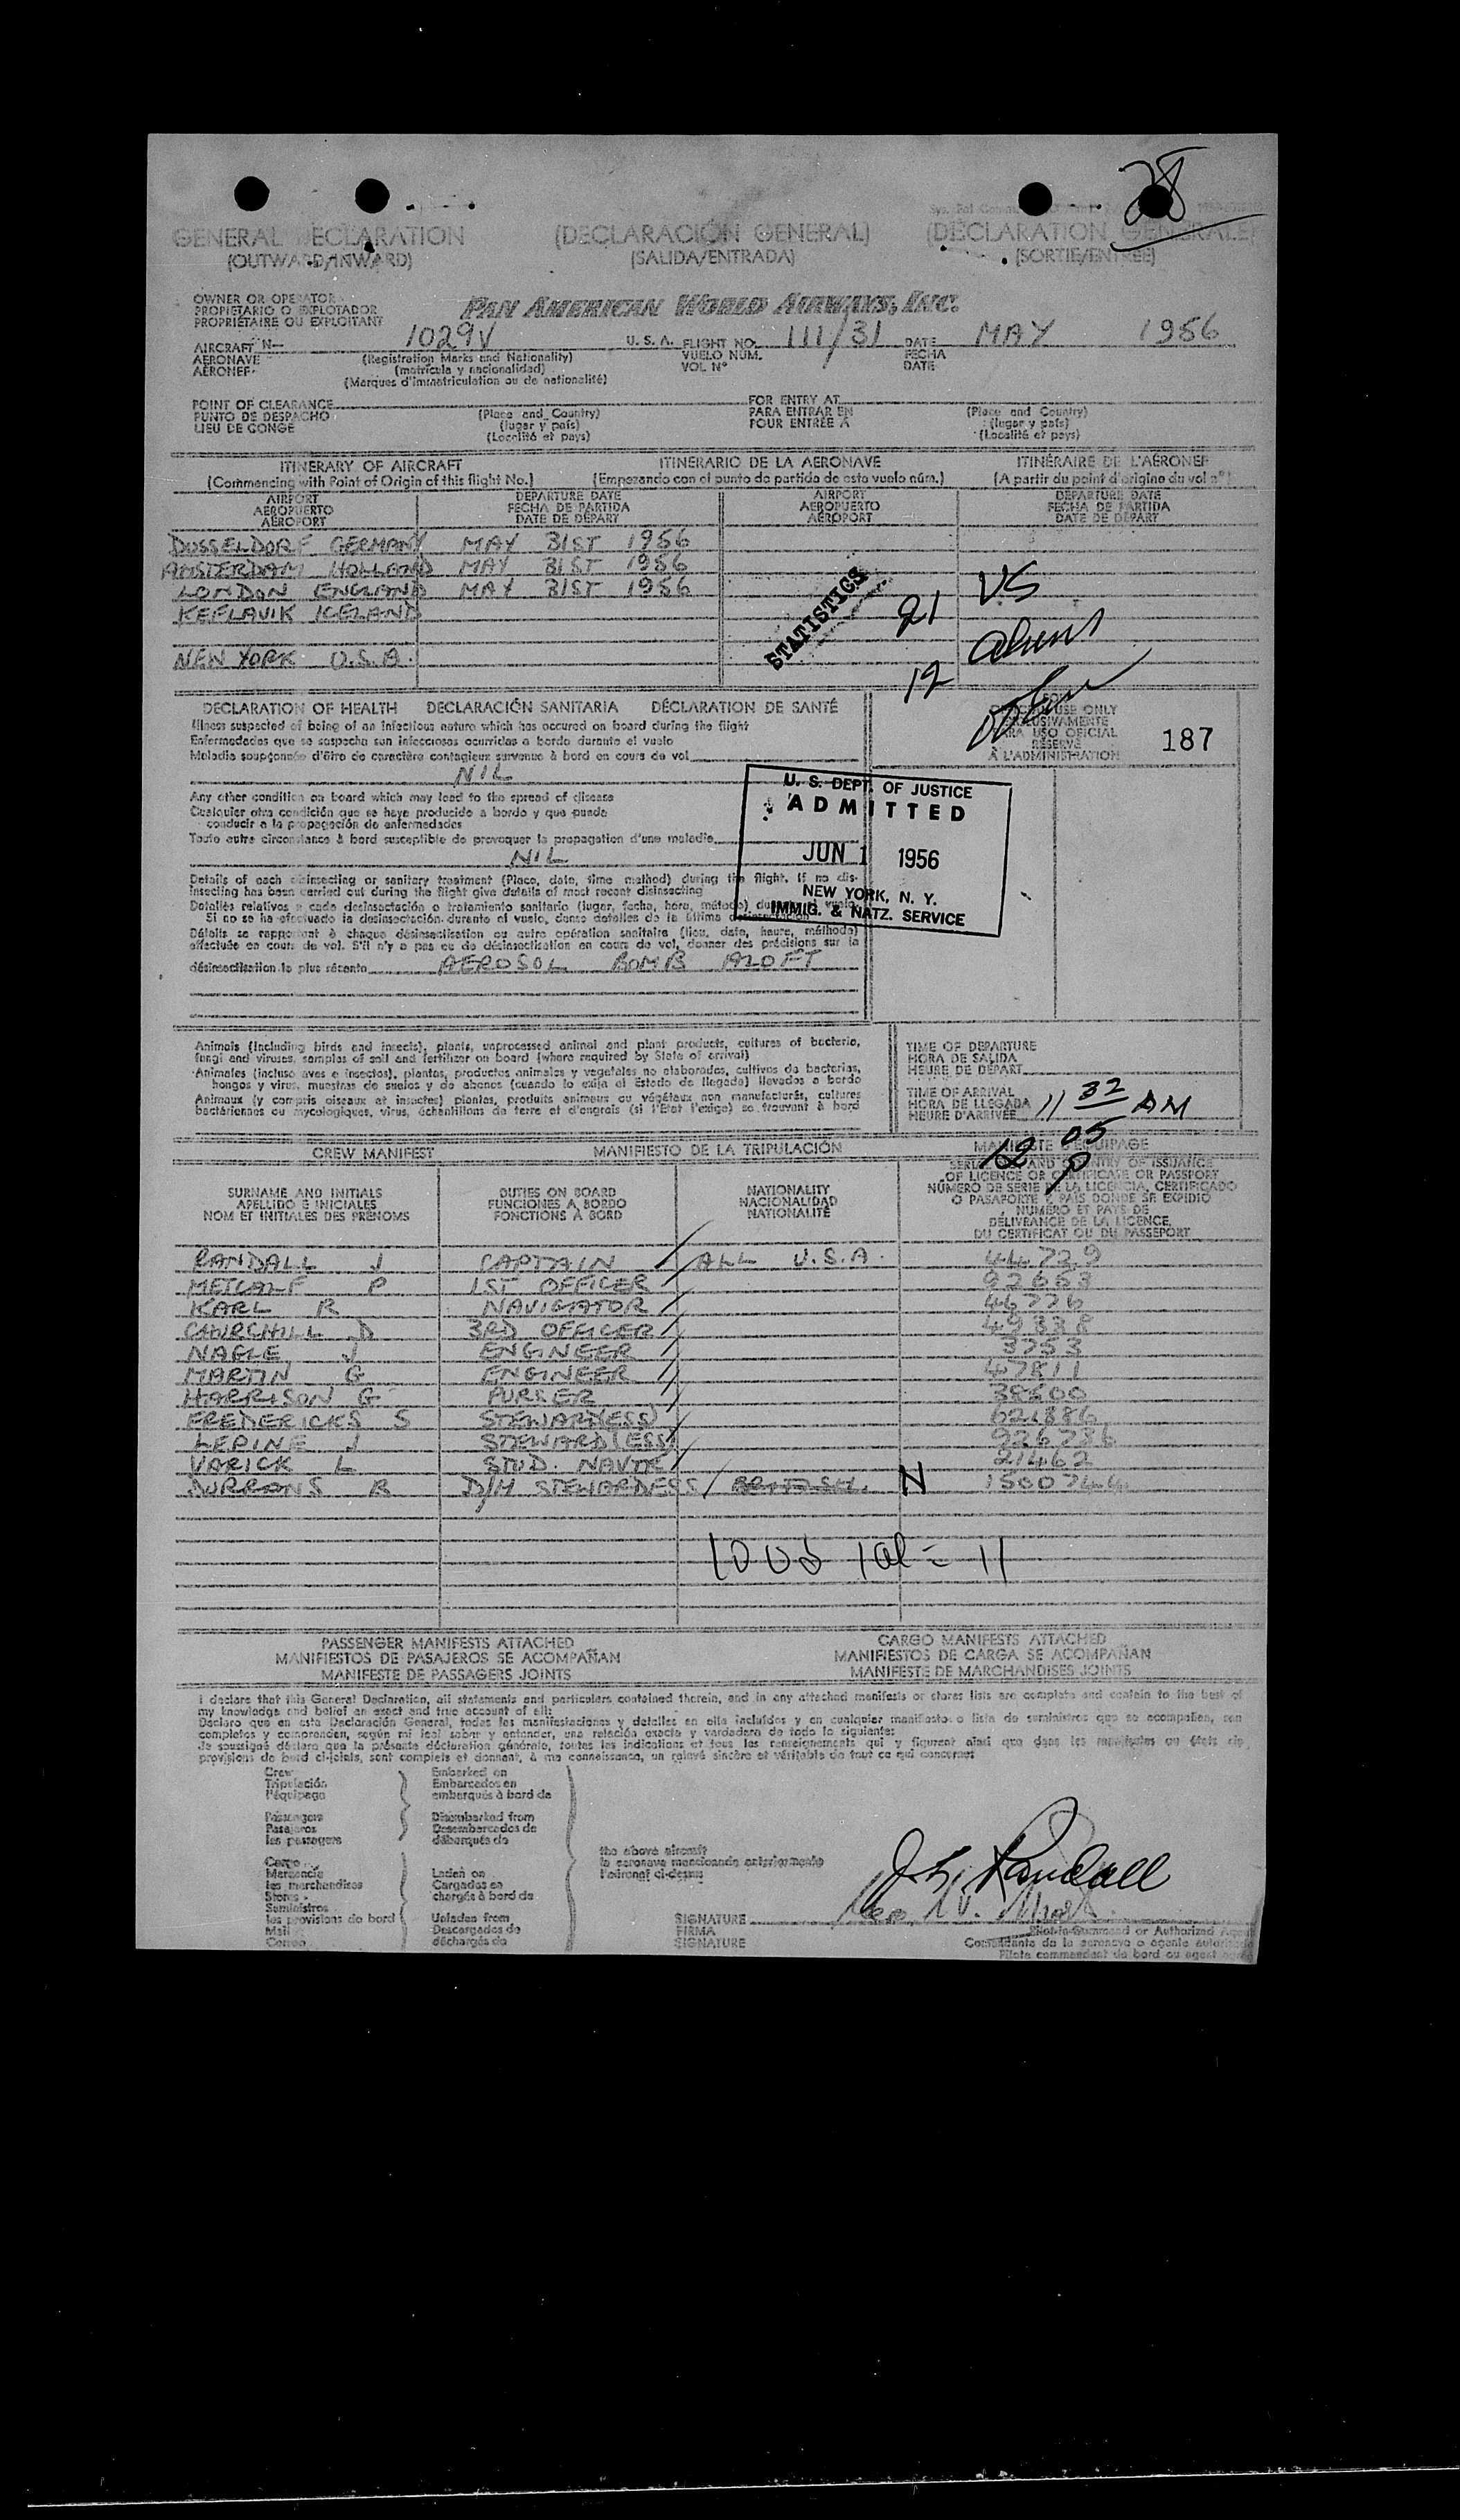 28
GENERAL DECLARATION (DECLARACIÓN GENERAL) (DÉCLARATION GÉNÉRALE)
(OUTWARD/INWARD) (SALIDA/ENTRADA) (SORTIE/ENTRÉE)
OWNER OR OPERATOR
PROPIETARIO O EXPLOTADOR
PROPRIÉTAIRE OU EXPLOITANT
PAN AMERICAN WORLD AIRWAYS, INC.
AIRCRAFT N- 1029V U. S. A. FLIGHT NO. 111/31 DATE MAY 1956
AERONAVE (Registration Marks and Nationality) VUELO NÚM. FECHA
AÉRONEF (matrícula y nacionalidad) VOL Nº DATE
(Marques d'immatriculation ou de nationalité)
POINT OF CLEARANCE FOR ENTRY AT
PUNTO DE DESPACHO (Place and Country) PARA ENTRAR EN (Place and Country)
LIEU DE CONGÉ (lugar y país) POUR ENTRÉE À (lugar y país)
(Localité et pays) (Localité et pays)
ITINERARY OF AIRCRAFT ITINERARIO DE LA AERONAVE ITINÉRAIRE DE L'AÉRONEF
(Commencing with Point of Origin of this flight No.) (Empezando con el punto de partida de este vuelo núm.) (A partir du point d'origine du vol nº)
AIRPORT DEPARTURE DATE AIRPORT DEPARTURE DATE
AEROPUERTO FECHA DE PARTIDA AEROPUERTO FECHA DE PARTIDA
AÉROPORT DATE DE DÉPART AÉROPORT DATE DE DÉPART
DUSSELDORF GERMANY MAY 31ST 1956
AMSTERDAM HOLLAND MAY 31ST 1956
LONDON ENGLAND MAY 31ST 1956
KEFLAVIK ICELAND
NEW YORK U.S.A.
STATISTICS
21 US
12
DECLARATION OF HEALTH DECLARACIÓN SANITARIA DÉCLARATION DE SANTÉ
Illness suspected of being of an infectious nature which has occured on board during the flight
Enfermedades que se sospecha son infecciosas ocurridas a bordo durante el vuelo
Maladie soupçonnée d'être de caractère contagieux survenue à bord en cours de vol
NIL
USE ONLY
EXCLUSIVAMENTE
PARA USO OFICIAL
RÉSERVÉ
À L'ADMINISTRATION
187
Any other condition on board which may lead to the spread of disease
Cualquier otra condición que se haya producido a bordo y que pueda
conducir a la propagación de enfermedades
Toute autre circonstance à bord susceptible de provoquer la propagation d'une maladie
NIL
U. S. DEPT. OF JUSTICE
ADMITTED
JUN 1 1956
NEW YORK, N. Y.
IMMIG. & NATZ. SERVICE
Details of each disinsecting or sanitary treatment (Place, date, time method) during the flight. If no dis-
insecting has been carried out during the flight give details of most recent disinsecting
Detalles relativos a cada desinsectación o tratamiento sanitario (lugar, fecha, hora, método) durante el vuelo.
Si no se ha efectuado la desinsectación durante el vuelo, dense detalles de la última desinsectación
Détails se rapportant à chaque désinsectisation ou autre opération sanitaire (lieu, date, heure, méthode)
effectuée en cours de vol. S'il n'y a pas eu de désinsectisation en cours de vol, donner des précisions sur la
désinsectisation la plus récente AEROSOL BOMB ALOFT
Animals (including birds and insects), plants, unprocessed animal and plant products, cultures of bacteria,
fungi and viruses, samples of soil and fertilizer on board (where required by State of arrival)
Animales (incluso aves e insectos), plantas, productos animales y vegetales no elaborados, cultivos de bacterias,
hongos y virus, muestras de suelos y de abonos (cuando lo exija el Estado de llegada) llevados a bordo
Animaux (y compris oiseaux et insectes) plantes, produits animaux ou végétaux non manufacturés, cultures
bactériennes ou mycologiques, virus, échantillons de terre et d'engrais (si l'Etat l'exige) se trouvant à bord
TIME OF DEPARTURE
HORA DE SALIDA
HEURE DE DÉPART
TIME OF ARRIVAL
HORA DE LLEGADA
HEURE D'ARRIVÉE 11 32 AM
12 05 P
CREW MANIFEST MANIFIESTO DE LA TRIPULACIÓN MANIFESTE D'ÉQUIPAGE
SURNAME AND INITIALS DUTIES ON BOARD NATIONALITY SERIAL NO. AND COUNTRY OF ISSUANCE
APELLIDO E INICIALES FUNCIONES A BORDO NACIONALIDAD OF LICENCE OR CERTIFICATE OR PASSPORT
NOM ET INITIALES DES PRÉNOMS FONCTIONS À BORD NATIONALITÉ NÚMERO DE SERIE DE LA LICENCIA, CERTIFICADO
O PASAPORTE Y PAÍS DONDE SE EXPIDIÓ
NUMÉRO ET PAYS DE
DÉLIVRANCE DE LA LICENCE,
DU CERTIFICAT OU DU PASSEPORT
RANDALL J CAPTAIN / ALL U.S.A. 44729
METCALF P 1ST OFFICER / 92663
KARL R NAVIGATOR / 46776
CHURCHILL D 3RD OFFICER / 49338
NAGLE J ENGINEER / 3753
MARTIN G ENGINEER / 47811
HARRISON G PURSER / 38600
FREDERICKS S STEWARD(ESS) / 621886
LEPINE J STEWARD(ESS) / 926736
VARICK L STUD. NAVTR / 21462
DURRANS B D/H STEWARDESS / BRITISH. N 1500744
10 US 1 al = 11
PASSENGER MANIFESTS ATTACHED CARGO MANIFESTS ATTACHED
MANIFIESTOS DE PASAJEROS SE ACOMPAÑAN MANIFIESTOS DE CARGA SE ACOMPAÑAN
MANIFESTE DE PASSAGERS JOINTS MANIFESTE DE MARCHANDISES JOINTS
I declare that this General Declaration, all statements and particulars contained therein, and in any attached manifests or stores lists are complete and contain to the best of
my knowledge and belief an exact and true account of all:
Declaro que en esta Declaración General, todas las manifestaciones y detalles en ella incluídos y en cualquier manifiesto o lista de suministros que se acompañen, son
completos y comprenden, según mi leal saber y entender, una relación exacta y verdadera de todo lo siguiente:
Je soussigné déclare que la présente déclaration générale, toutes les indications et tous les renseignements qui y figurent ainsi que dans les manifestes ou états de
provisions de bord ci-joints, sont complets et donnent, à ma connaissance, un relevé sincère et véritable de tout ce qui concerne:
Crew Embarked on
Tripulación Embarcados en
l'équipage embarqués à bord de
Passengers Disembarked from
Pasajeros Desembarcados de
les passagers débarqués de
Cargo
Mercancía Laden on
les marchandises Cargados en
Stores chargés à bord de
Suministros
les provisions de bord Unladen from
Mail Descargados de
Correo déchargés de
the above aircraft
la aeronave mencionada anteriormente
l'aéronef ci-dessus
J. H. Randall
SIGNATURE Pilot-in-Command or Authorized Agent
FIRMA Comandante de la aeronave o agente autorizado
SIGNATURE Pilote commandant de bord ou agent agréé